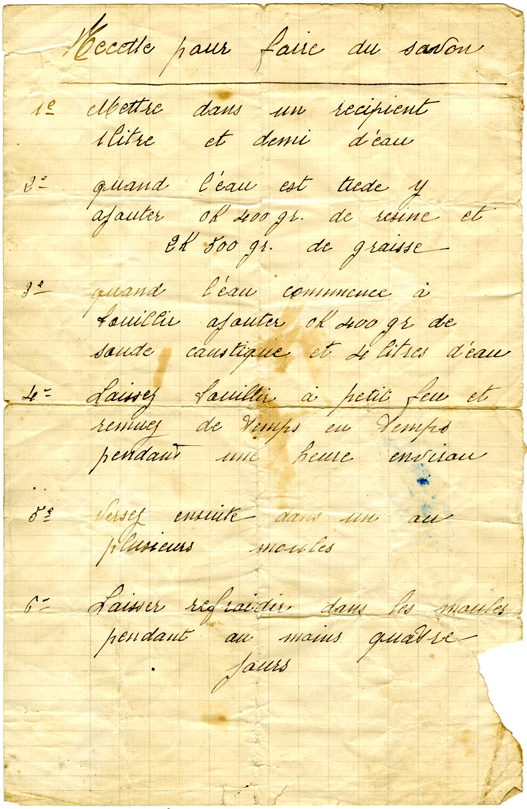 Recette pour faire du savon
1º Mettre dans un recipient
1 litre et demi d'eau
2º quand l'eau est tiede y
ajouter 0K 400 gr. de resine et
2K 500 gr. de graisse
3º quand l'eau commence à
bouillir ajouter 0K 400 gr de
soude caustique et 4 litres d'eau
4º Laissez bouillir à petit feu et
remuez de temps en temps
pendant une heure environ
5º Versez ensuite dans un ou
plusieurs moules
6º Laisser refroidir dans les moules
pendant au moins quatre
jours